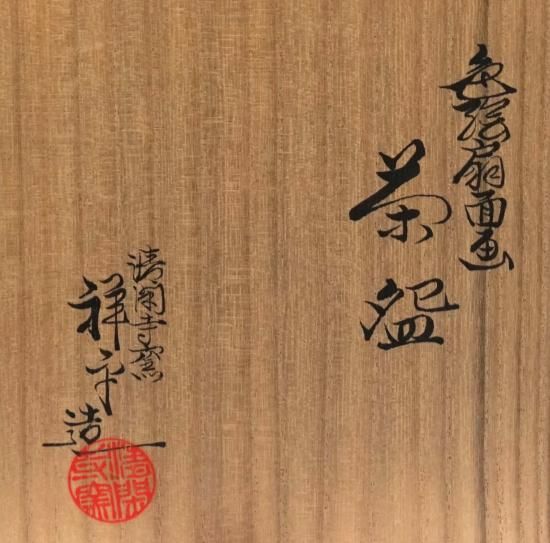 色絵扇面画
茶盌
清閑寺窯
祥平造
清閑寺窯